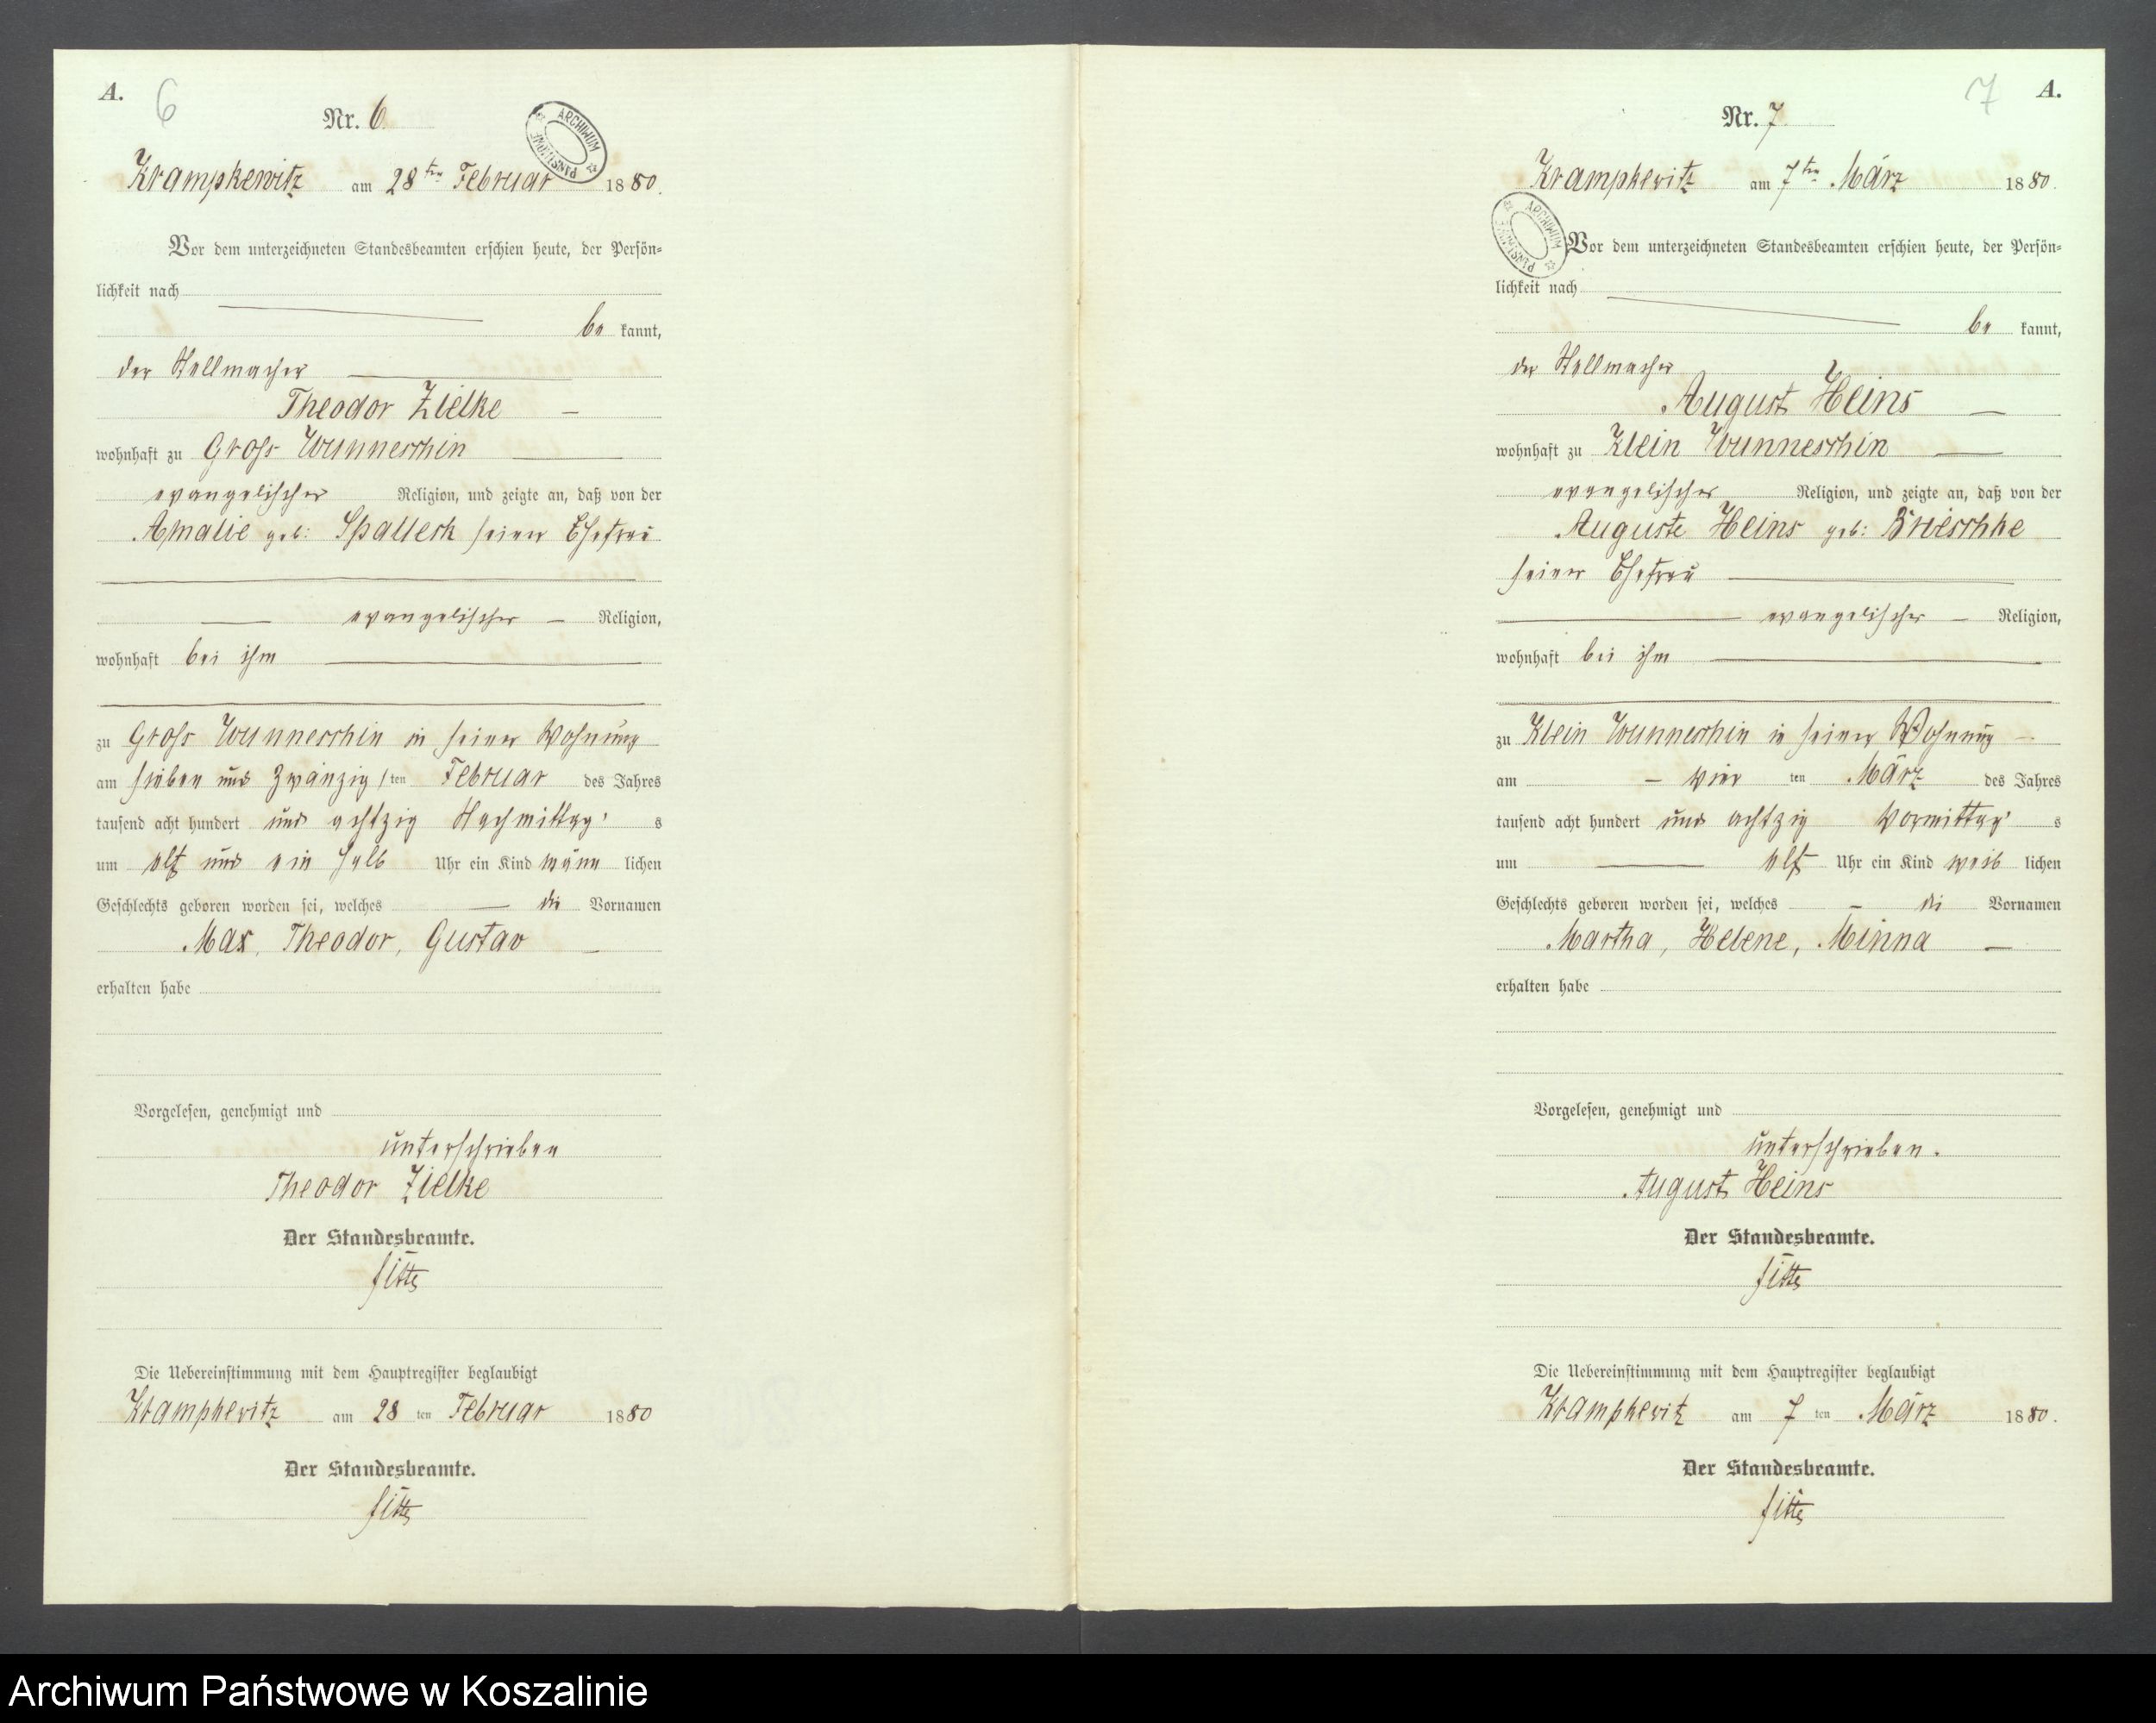 A.
6
Nr. 6.
ARCHIWUM PAŃSTWOWE
Krampkewitz am 28ten Februar 1880.
Vor dem unterzeichneten Standesbeamten erschien heute, der Persön=
lichkeit nach
be kannt,
der Stellmacher
Theodor Zielke
wohnhaft zu Gross Wunneschin
evangelischer Religion, und zeigte an, daß von der
Amalie geb: Spalleck seiner Ehefrau
evangelischer Religion,
wohnhaft bei ihm
zu Gross Wunneschin in seiner Wohnung
am sieben und zwanzigsten Februar des Jahres
tausend acht hundert und achtzig Nachmittags
um elf und ein halb Uhr ein Kind männ lichen
Geschlechts geboren worden sei, welches die Vornamen
Max, Theodor, Gustav
erhalten habe
Vorgelesen, genehmigt und
unterschrieben
Theodor Zielke
Der Standesbeamte.
Die Uebereinstimmung mit dem Hauptregister beglaubigt
Krampkewitz am 28 ten Februar 1880
Der Standesbeamte.
7
A.
Nr. 7.
ARCHIWUM PAŃSTWOWE
Krampkewitz am 7ten März 1880.
Vor dem unterzeichneten Standesbeamten erschien heute, der Persön=
lichkeit nach
be kannt,
der Stellmacher
August Heins
wohnhaft zu Klein Wunneschin
evangelischer Religion, und zeigte an, daß von der
Auguste Heins geb: Brieschke
seiner Ehefrau
evangelischer Religion,
wohnhaft bei ihm
zu Klein Wunneschin in seiner Wohnung
am vier ten März des Jahres
tausend acht hundert und achtzig Vormittags
um elf Uhr ein Kind weib lichen
Geschlechts geboren worden sei, welches die Vornamen
Martha, Helene, Minna
erhalten habe
Vorgelesen, genehmigt und
unterschrieben.
August Heins
Der Standesbeamte.
Die Uebereinstimmung mit dem Hauptregister beglaubigt
Krampkewitz am 7 ten März 1880.
Der Standesbeamte.
Archiwum Państwowe w Koszalinie